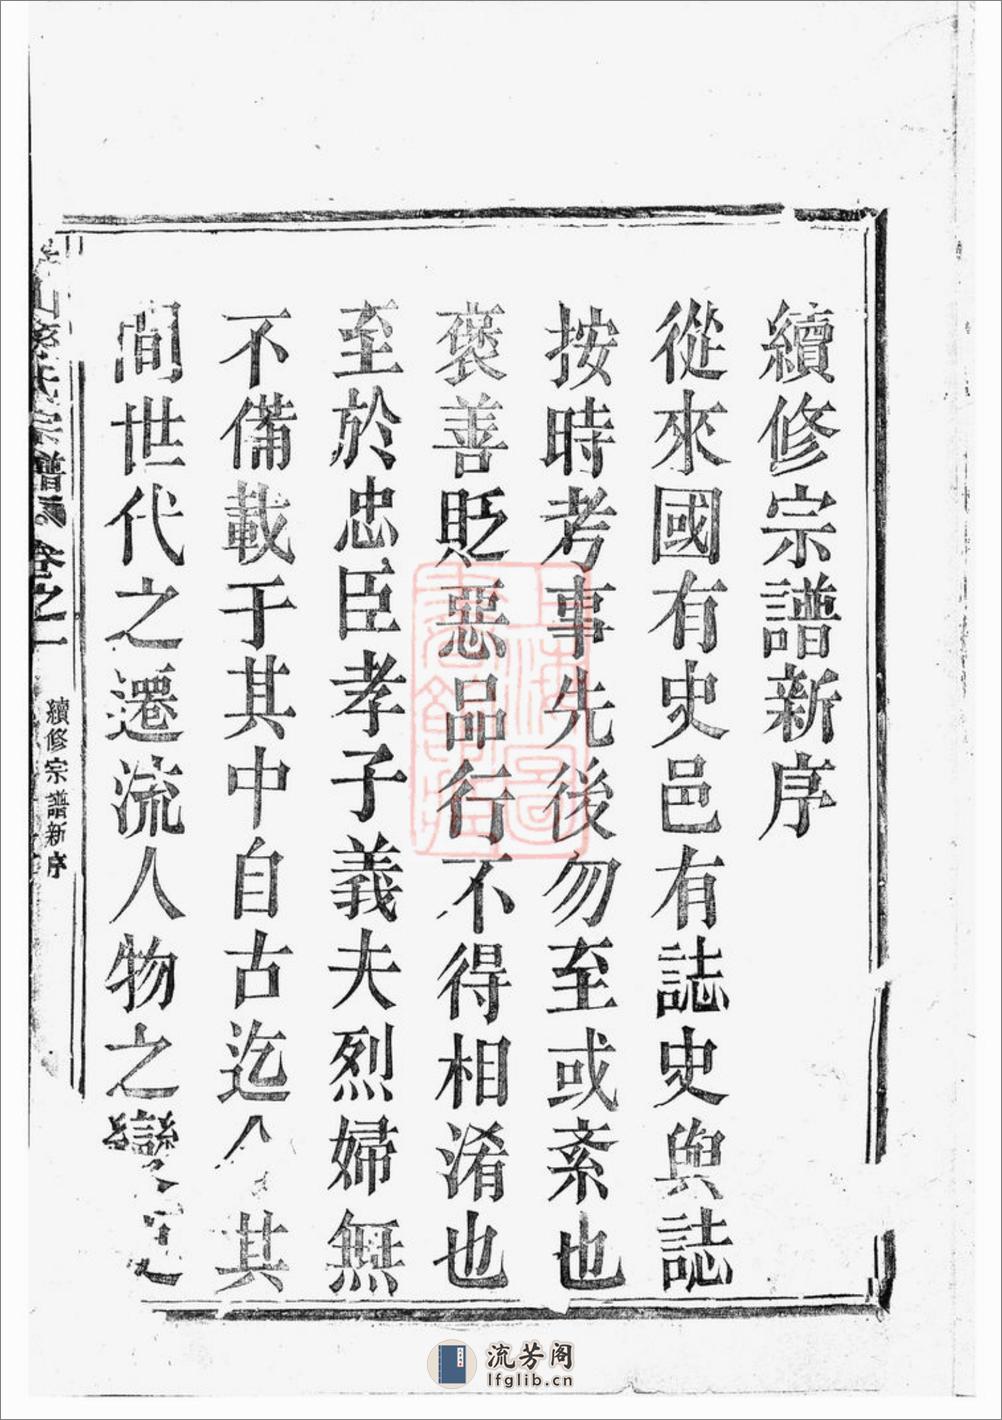 續修宗譜新序
從來國有史邑有誌史與誌
按時考事先後勿至或紊也
褒善貶惡品行不得相淆也
至於忠臣孝子義夫烈婦無
不備載于其中自古迄今其
間世代之遷流人物之變
山 氏宗譜 卷之一
續修宗譜新序
上海圖書館藏
流芳阁
lfglib.cn